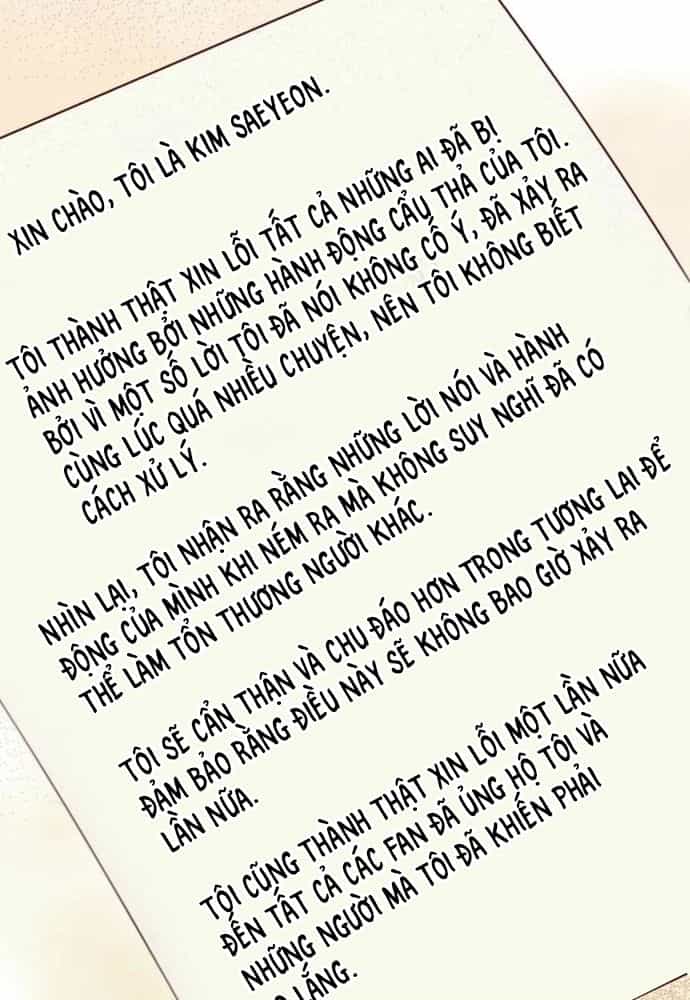 XIN CHÀO, TÔI LÀ KIM SAEYEON.
TÔI THÀNH THẬT XIN LỖI TẤT CẢ NHỮNG AI ĐÃ BỊ
ẢNH HƯỞNG BỞI NHỮNG HÀNH ĐỘNG CẨU THẢ CỦA TÔI.
BỞI VÌ MỘT SỐ LỜI TÔI ĐÃ NÓI KHÔNG CỐ Ý, ĐÃ XẢY RA
CÙNG LÚC QUÁ NHIỀU CHUYỆN, NÊN TÔI KHÔNG BIẾT
CÁCH XỬ LÝ.
NHÌN LẠI, TÔI NHẬN RA RẰNG NHỮNG LỜI NÓI VÀ HÀNH
ĐỘNG CỦA MÌNH KHI NÉM RA MÀ KHÔNG SUY NGHĨ ĐÃ CÓ
THỂ LÀM TỔN THƯƠNG NGƯỜI KHÁC.
TÔI SẼ CẨN THẬN VÀ CHU ĐÁO HƠN TRONG TƯƠNG LAI ĐỂ
ĐẢM BẢO RẰNG ĐIỀU NÀY SẼ KHÔNG BAO GIỜ XẢY RA
LẦN NỮA.
TÔI CŨNG THÀNH THẬT XIN LỖI MỘT LẦN NỮA
ĐẾN TẤT CẢ CÁC FAN ĐÃ ỦNG HỘ TÔI VÀ
NHỮNG NGƯỜI MÀ TÔI ĐÃ KHIẾN PHẢI
LẮNG.